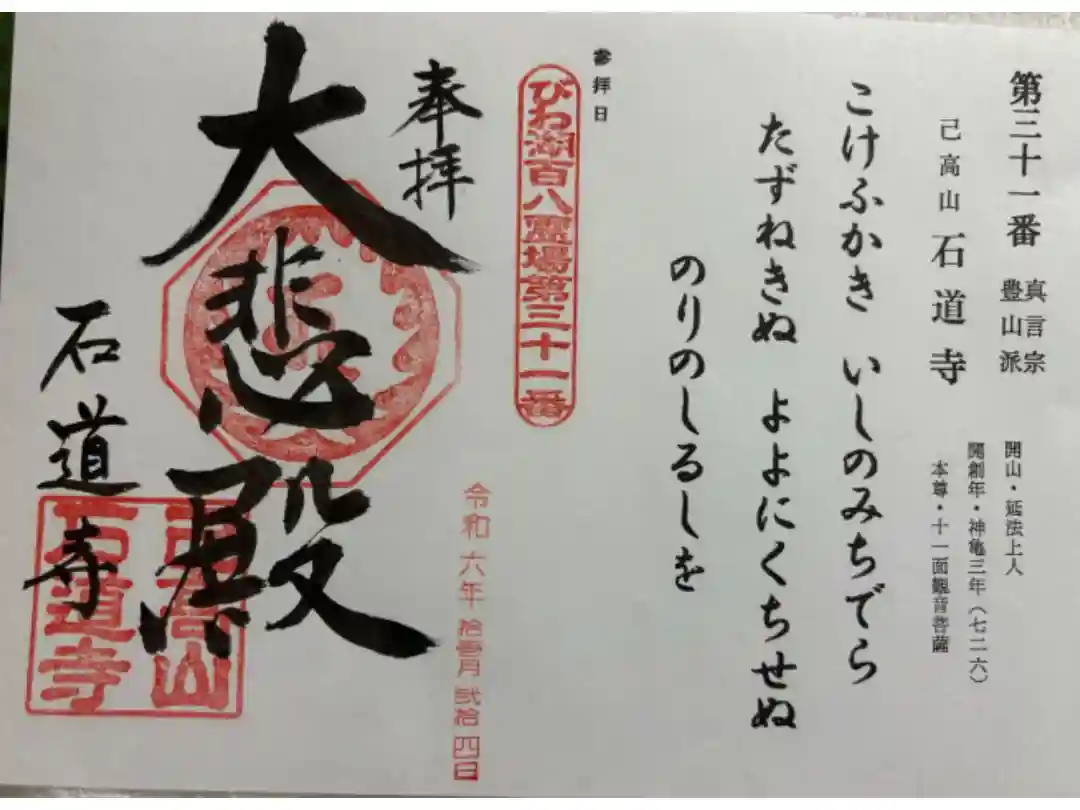 第三十一番
真言宗
豊山派
己高山 石道寺
開山・延法上人
開創年・神亀三年(七二六)
本尊・十一面観音菩薩
こけふかき いしのみちでら
たずねきぬ よよにくちせぬ
のりのしるしを
参拝日
びわ湖百八霊場第三十一番
奉拝
令和六年拾壱月弐拾四日
大悲殿
石道寺
己高山
石道寺